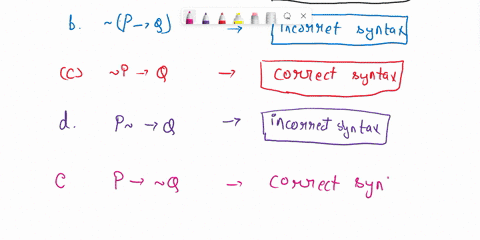 b. ~(P→Q) → incorret syntax
(c) ~P → Q → correct syntax
d. P~ → Q → incorrect syntax
C P → ~Q → correct syn